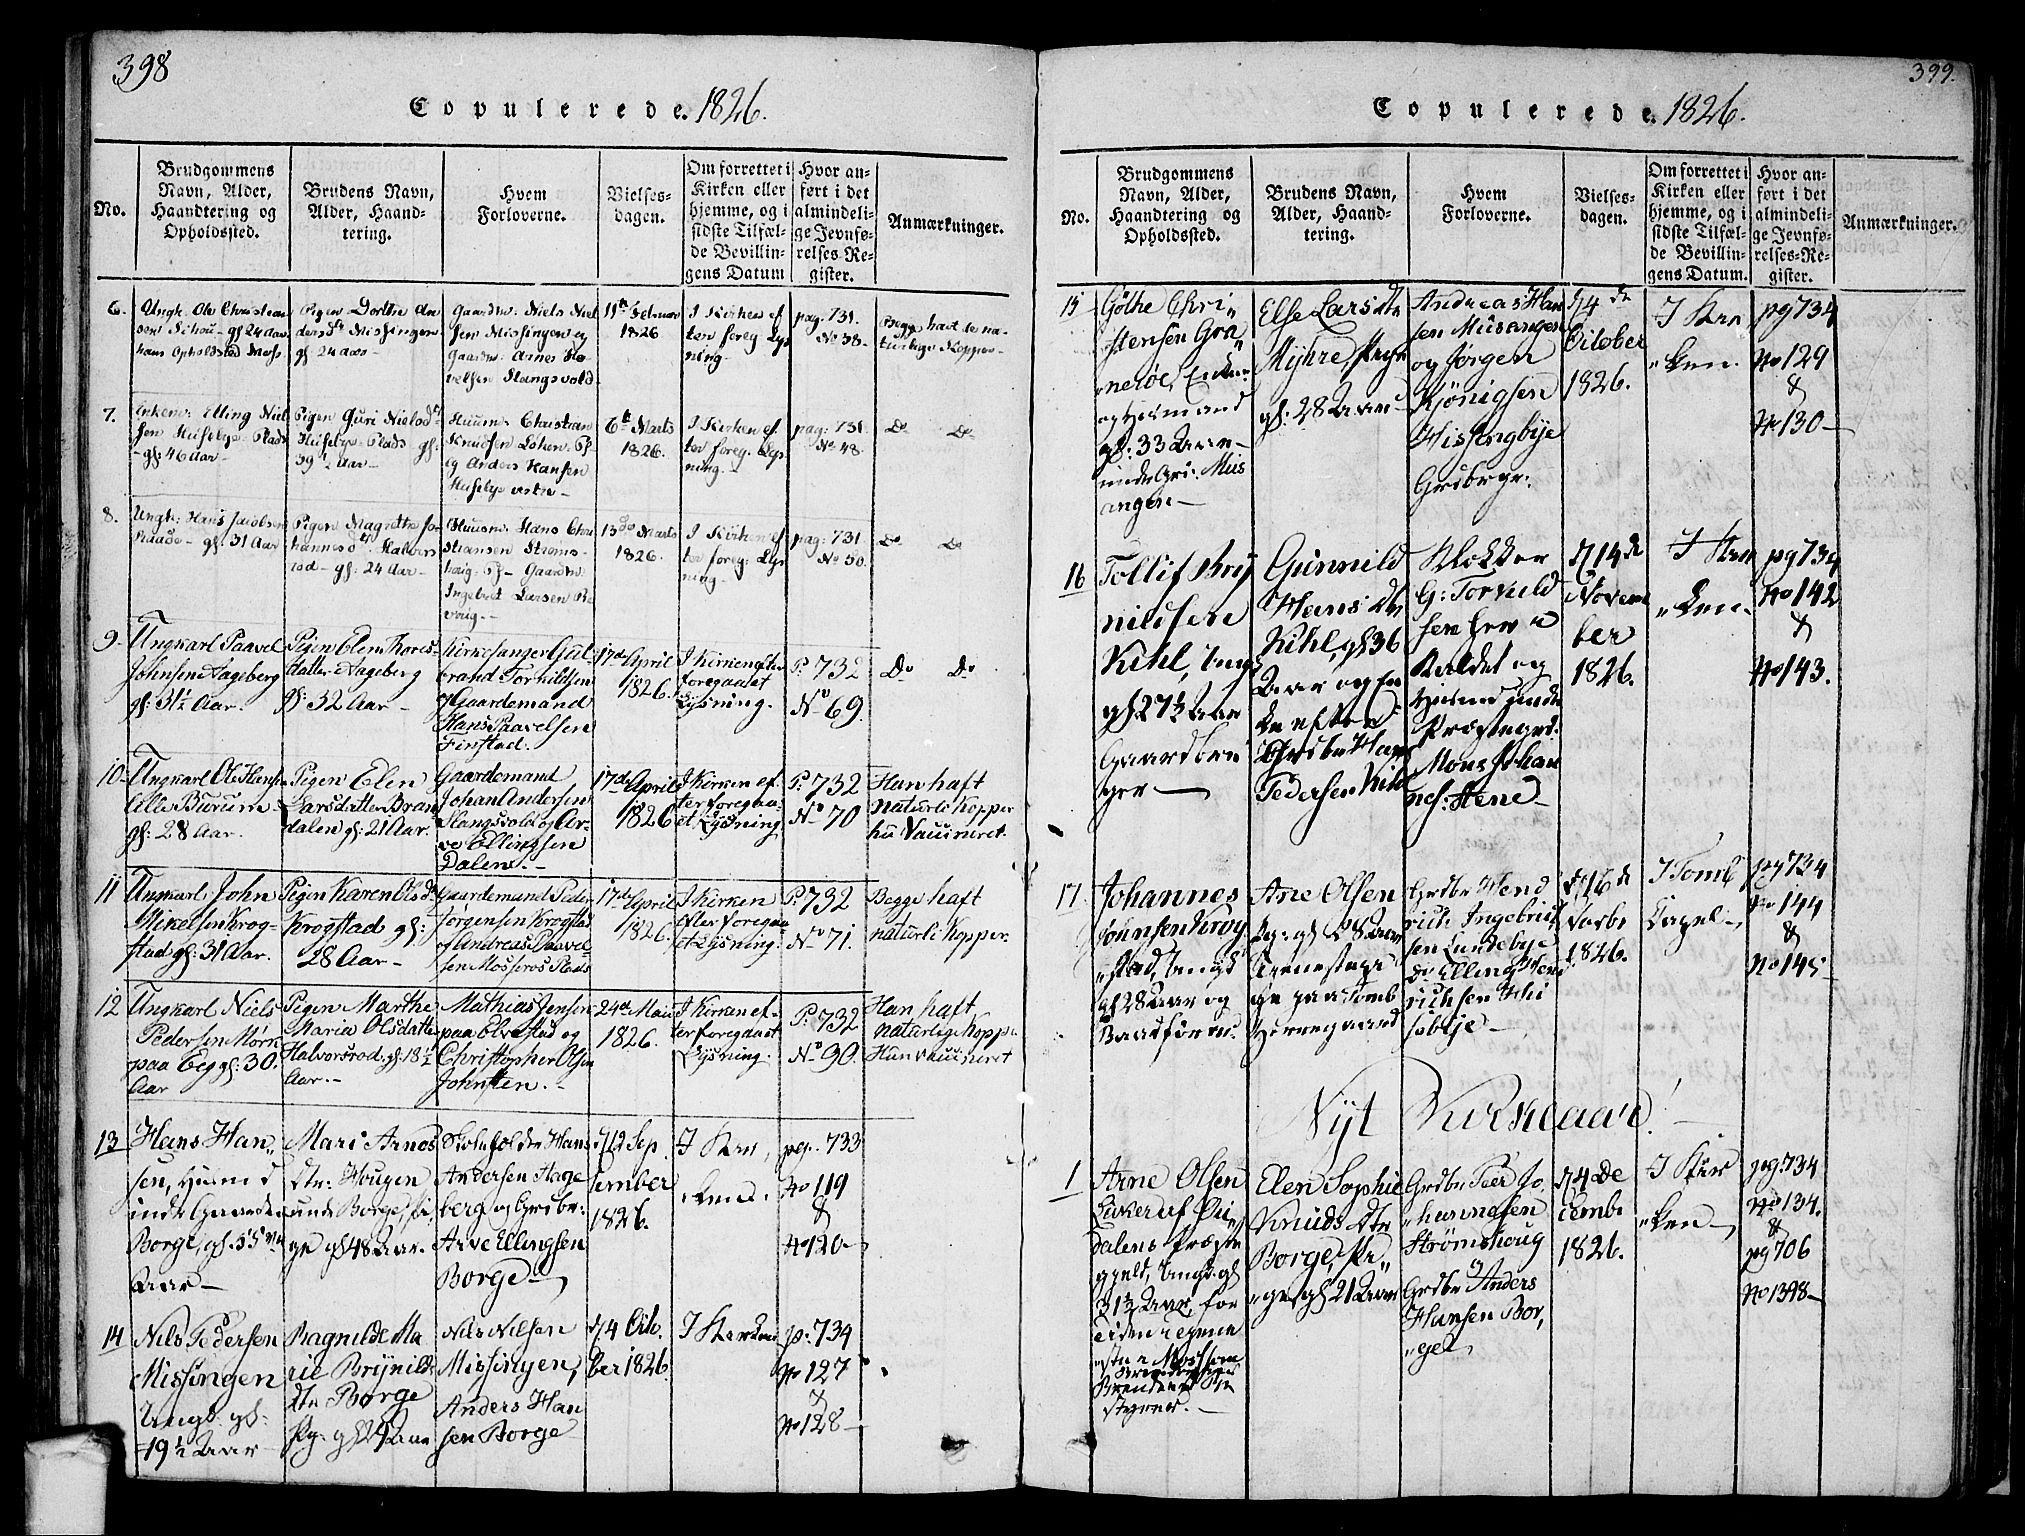 398
Copulerede. 1826.
No.
Brudgommens
Navn, Alder,
Haandtering og
Opholdssted.
Brudens Navn,
Alder, Haand-
tering.
Hvem
Forloverne.
Vielses-
dagen.
Om forrettet i
Kirken eller
hjemme, og i
sidste Tilfæl-
de Bevillin-
gens Datum
Hvor an-
ført i det
almindeli-
ge Jevnfø-
relses-Re-
gister.
Anmærkninger.
6.
Ungk. Ole Christian
gf 24 Aar
Opholdsted Moss
Pigen Dorthe An
dersdr Missingen
gf 24 Aar
Gaardm. Niels Niel
sen Missingen og
Gaardm. Arnes
velsen Slangsvold
11te Februar
1826
I Kirken ef
ter foreg. Lys
ning.
pag. 731.
No 38.
Begge havt de na
turlige Kopper
7.
Enkem: Elling Niel
sen Huselbye Plads
gf: 46 Aar
Pigen Guri Nielsdr
Huselbye Plads gf:
39 1/2 Aar
Huusm. Christian
Knudsen
og Anders Hansen
Huselbye vestre
6te Marts
1826.
I Kirken ef
ter foreg. Lys
ning.
pag: 731.
No 48.
Do Do
8.
Ungk: Hans Jacobsen
Raade gf: 31 Aar
Pigen Magrethe Jo
hannesdr Halvors
rød gf: 24 Aar
Huusm: Hans Chri
stiansen Strøms
houg Gaardm:
Ingebret Larsen
houg.
13de Marts
1826.
I Kirken ef
ter foreg: Lys
ning.
pag: 731.
No 50.
Do Do
9.
Ungkarl Paavel
Johnsen Aageberg
gf: 31 1/2 Aar.
Pigen Elen Lars
datter Aageberg
gf: 32 Aar
Kirkesanger Gul-
brand Torkildsen
og Gaardemand
Hans Paavelsen
Finstad.
17de April
1826.
I Kirken efter
foregaaet
Lysning.
P: 732
No 69.
Do Do
10.
Ungkarl Ole Hansen
gf: 28 Aar.
Pigen Elen
Larsdatter Bran
dalen gf: 21 Aar.
Gaardemand
Johan Andersen
Slangsvold og Ar-
ve Ellingsen
Dalen.
17de April
1826
I Kirken ef
ter foregaa
et Lysning
P: 732
No 70
Han haft
naturli Kopper
hu Vauineret.
11
Ungkarl John
Mikelsen Krog-
stad gf: 31 Aar.
Pigen Karen Olsdr
Krogstad gf:
28 Aar
Gaardemand Peder
Jørgensen Krogstad
og Andreas Paavel
sen Mosseros Plads
17de April
1826.
I Kirken
efter foregaa
et Lysning.
P: 732
No 71.
Begge haft
naturli Kopper
12
Ungkarl Niels
Pedersen Mørk
paa Eeg gf: 30.
Aar
Pigen Marthe
Maria Olsdatter
Halvorsrod gf: 18 1/2
Aar.
Mathias Jensen
paa Elvestad og
Christopher Olsen
Johnsten.
24de Mai
1826.
I Kirken ef-
ter foregaaet
Lysning.
P: 732
No 90.
Han haft
naturlige Kopper
Hun vauineret
13
Hans Han
sen,
inde Gaarden
Borge, gf. 55
Aar
Mari Arnes
dtr: Hougen
unde Borge, Pi
ge gf 48 Aar.
Skoleholder Hans
Andersen Aage
berg og Grdbr:
Arve Ellingsen
Borge
d 12 Sep
tember
1826.
I Kir
ken.
pg. 733
No 119
&
No 120
14
Nils Pedersen
Missingen
Ungk: gf:
19 1/2 Aar
Ragnilde Ma
rie Brynilds
dtr Borge
Pg: gf 29 Aar
Nils Nilsen
Missingen,
Anders Han
sen Borge
d 4 Octo
ber 1826.
I Kirken
p: 734
No 127
&
No 128
399.
Copulerede. 1826.
No.
Brudgommens
Navn, Alder,
Haandtering og
Opholdssted.
Brudens Navn,
Alder, Haand-
tering.
Hvem
Forloverne.
Vielses-
dagen.
Om forrettet i
Kirken eller
hjemme, og i
sidste Tilfæl-
de Bevillin-
gens Datum.
Hvor an-
ført i det
almindeli-
ge Jevnfø-
relses-Re-
gister.
Anmærkninger.
15
Göthe Chri
stensen Gra
neröe,
og Huusmand
gf: 33 Aar
unde Grd: Mis
singen
Else Larsdtr
Myhre, Pige
gf: 28 Aar
Andreas Han
sen Missingen
og Jørgen
Kjönigsen
Hissingbye
Grdbrgr:
d 4de
October
1826.
I Kir
ken.
pg 734
No 129
&
No 130
16
Tollif Bry
nildsen
Kihl, Ungk
gf. 27 1/2 Aar
Gaardbru
ger
Gunnild
Hans dtr
Kihl, gf 36
Aar og En
ke efter
Grdbr Hans
Pedersen Kihl
Klokker
G: Torkild
sen her i
Kaldet og
unde
Præstegrd.
Mons Johan
nes: Stene
d 14de
Novem
ber
1826.
I Kir
ken.
pg 734
No 142
&
No 143.
17
Johannes
Jonnsen Krog
stad, Ungk
gf 28 Aar og
Baadfører.
Arne Olsen
Pg: gf 28 Aar
Tienestepi
ge paa Tomb
Herregaard
Grdbr Hend
rich Ingebrict
sen Lundebye
og Elling Hend
richsen
sebye
d 16de
Novbr
1826.
I Tomb
Capel
pg 734
No 144
&
No 145
Nyt Kirkeaar!
1
Arne Olsen
af Gu
dalens Præste
gjeld, Ungk. gf
31 1/2 Aar, for
tiden tiene
stue Moss som
Brendeviins
Elen Sophie
Knuds dtr
Borge, Pi
ge gf 21 Aar
Grdbr Peer Jo
hannesen
Strömshoug
og
Grdbr Anders
Hansen Bor
ge
d 4 De
cembr
1826.
I Kir
ken
pg: 734
No 134.
&
pg 706
No 1398